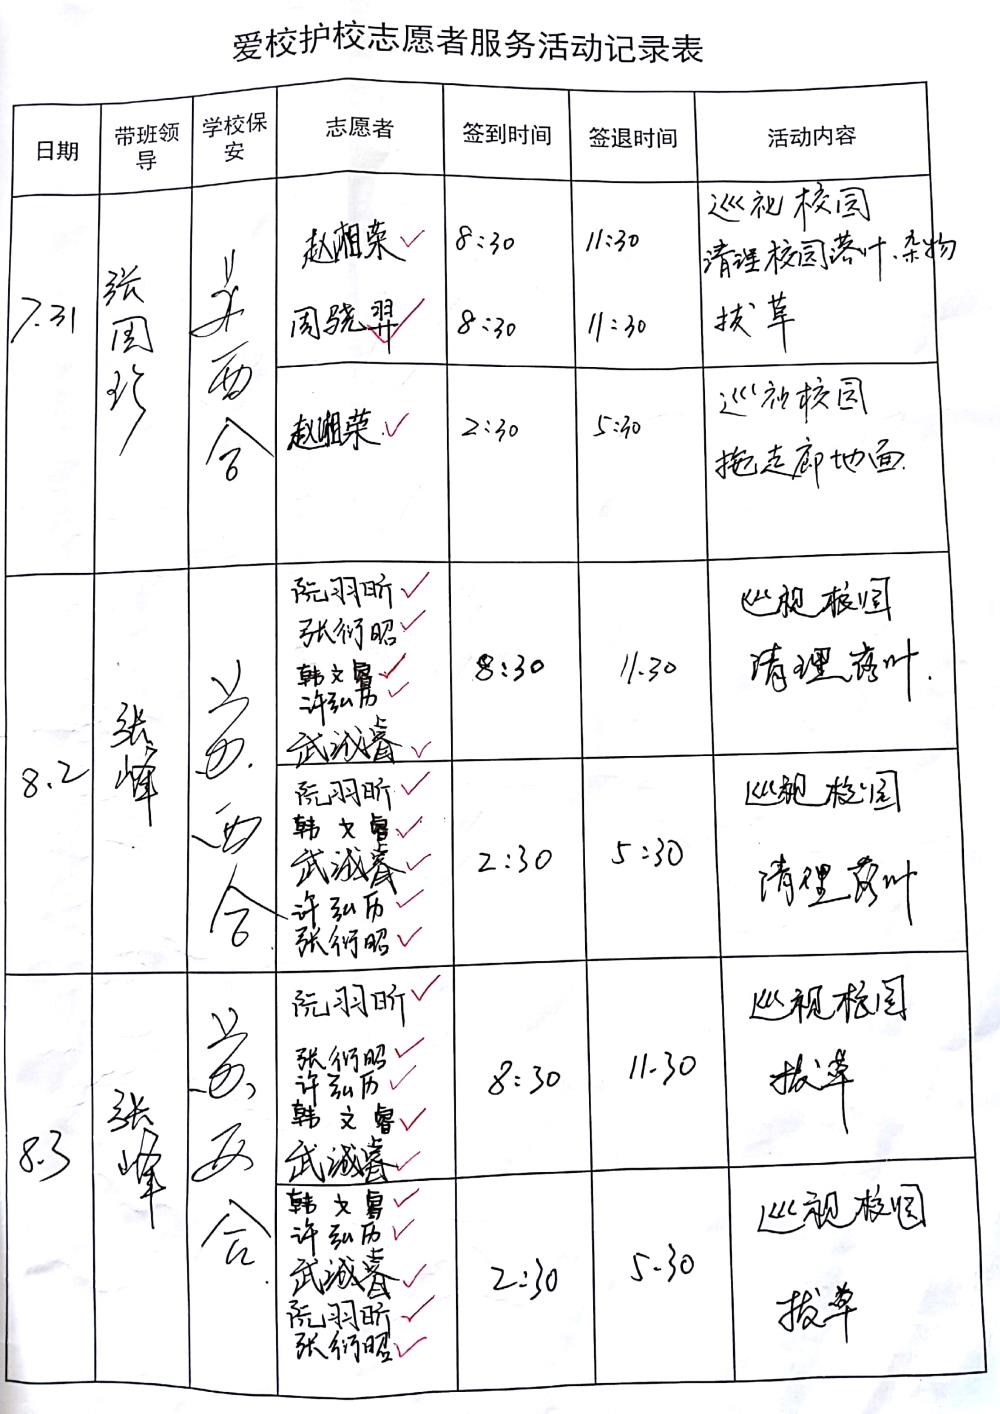 爱校护校志愿者服务活动记录表
日期 带班领导 学校保安 志愿者 签到时间 签退时间 活动内容
7.31
张国珍
西合
赵湘荣 8:30 11:30 巡视校园
清理校园落叶、杂物
周骁羿 8:30 11:30 拔草
赵湘荣 2:30 5:30 巡视校园
拖走廊地面.
8.2
张峰
西合
阮羽昕
张衍昭
韩文睿 8:30 11.30 巡视校园
许弘历 清理落叶.
武诚睿
阮羽昕
韩文睿
武诚睿 2:30 5:30 巡视校园
许弘历 清理落叶
张衍昭
8.3
张峰
西合
阮羽昕
张衍昭
许弘历 8:30 11.30 巡视校园
韩文睿 拔草
武诚睿
韩文睿
许弘历
武诚睿 2:30 5.30 巡视校园
阮羽昕 拔草
张衍昭